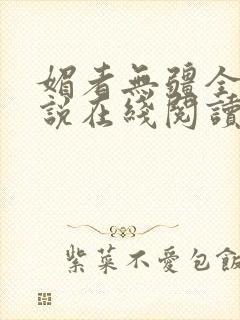 媚者無疆全
說在綫閱讀
紫菜不愛包飯